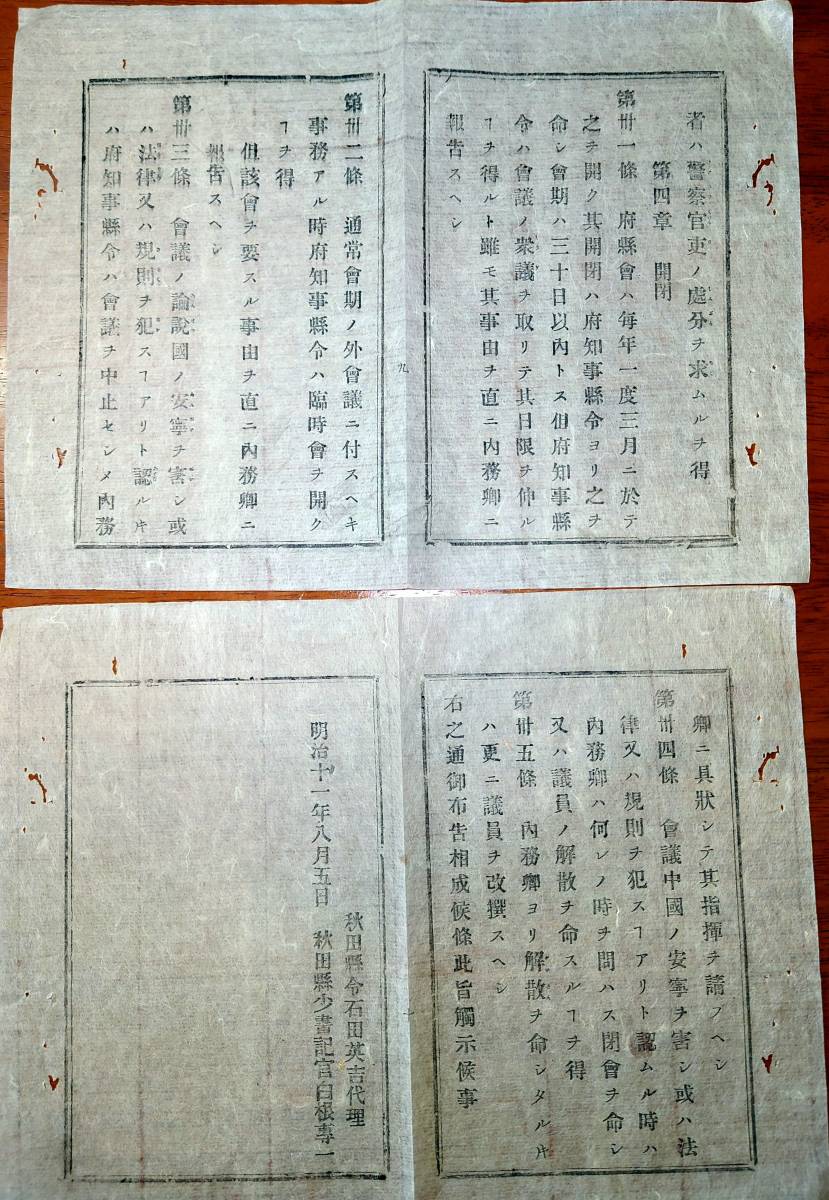 者ハ警察官吏ノ處分ヲ求ムルヲ得
第四章　開閉
第卅一條　府縣會ハ毎年一度三月ニ於テ
之ヲ開ク其開閉ハ府知事縣令ヨリ之ヲ
命シ會期ハ三十日以內トス但府知事縣
令ハ會議ノ衆議ヲ取リテ其日限ヲ伸ル
ヿヲ得ルト雖モ其事由ヲ直ニ內務卿ニ
報告スヘシ
九
第卅二條　通常會期ノ外會議ニ付スヘキ
事務アル時府知事縣令ハ臨時會ヲ開ク
ヿヲ得
但該會ヲ要スル事由ヲ直ニ內務卿ニ
報告スヘシ
第卅三條　會議ノ論說國ノ安寧ヲ害シ或
ハ法律又ハ規則ヲ犯スヿアリト認ルㇰ゙
ハ府知事縣令ハ會議ヲ中止セシメ內務
卿ニ具狀シテ其指揮ヲ請フヘシ
第卅四條　會議中國ノ安寧ヲ害シ或ハ法
律又ハ規則ヲ犯スヿアリト認ムル時ハ
內務卿ハ何レノ時ヲ問ハス閉會ヲ命シ
又ハ議員ノ解散ヲ命スルヿヲ得
第卅五條　內務卿ヨリ解散ヲ命シタル𪜈
ハ更ニ議員ヲ改撰スヘシ
右之通御布告相成候條此旨觸示候事
十
秋田縣令石田英吉代理
明治十一年八月五日　秋田縣少書記官白根專一